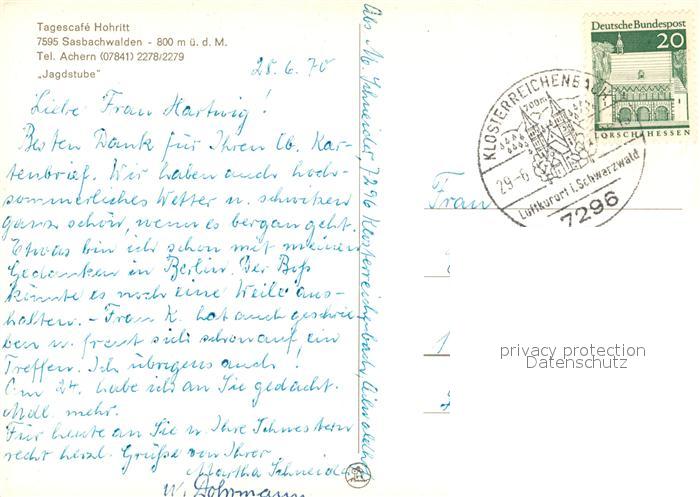 Tagescafé Hohritt
7595 Sasbachwalden - 800 m ü. d. M.
Tel. Achern (07841) 2278/2279
„Jagdstube"
28.6.70
Liebe Frau Hartwig!
Besten Dank für Ihren lb. Kar-
tenbrief. Wir haben auch hoch-
sommerliches Wetter u. schwitzen
ganz schön, wenn es bergan geht.
Etwas bin ich schon mit meinen
Gedanken in Berlin. Der Boß
könnte es noch eine Weile aus-
halten. - Frau K. hat auch geschrie-
ben u. freut sich schon auf ein
Treffen. Ich übrigens auch!
Am 24. habe ich an Sie gedacht.
Mdl. mehr.
Für heute an Sie u. Ihre Schwestern
recht herzl. Grüße von Ihrer
Martha Schneider
u. Dohrmann
Abs. M. Schneider, 7296 Klosterreichenbach,
Deutsche Bundespost
20
LORSCH/HESSEN
KLOSTERREICHENBACH
700m
29.-6.
Luftkurort i. Schwarzwald
7296
Frau
privacy protection
Datenschutz